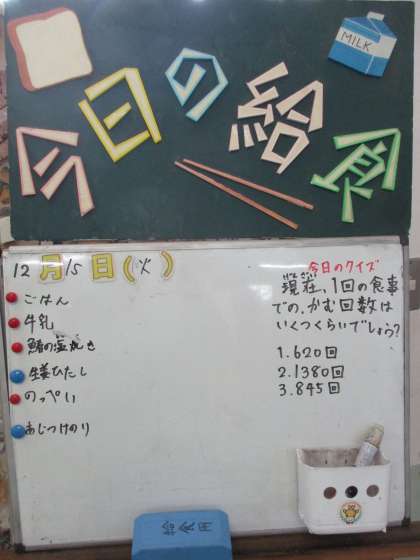 MILK
今日の給食
12月15日(火)
ごはん
牛乳
鰆の塩焼き
生姜ひたし
のっぺい
あじつけのり
今日のクイズ
げんざい
現在、1回の食事
での、かむ回数は
いくつくらいでしょう?
1.620回
2.1380回
3.845回
給食用